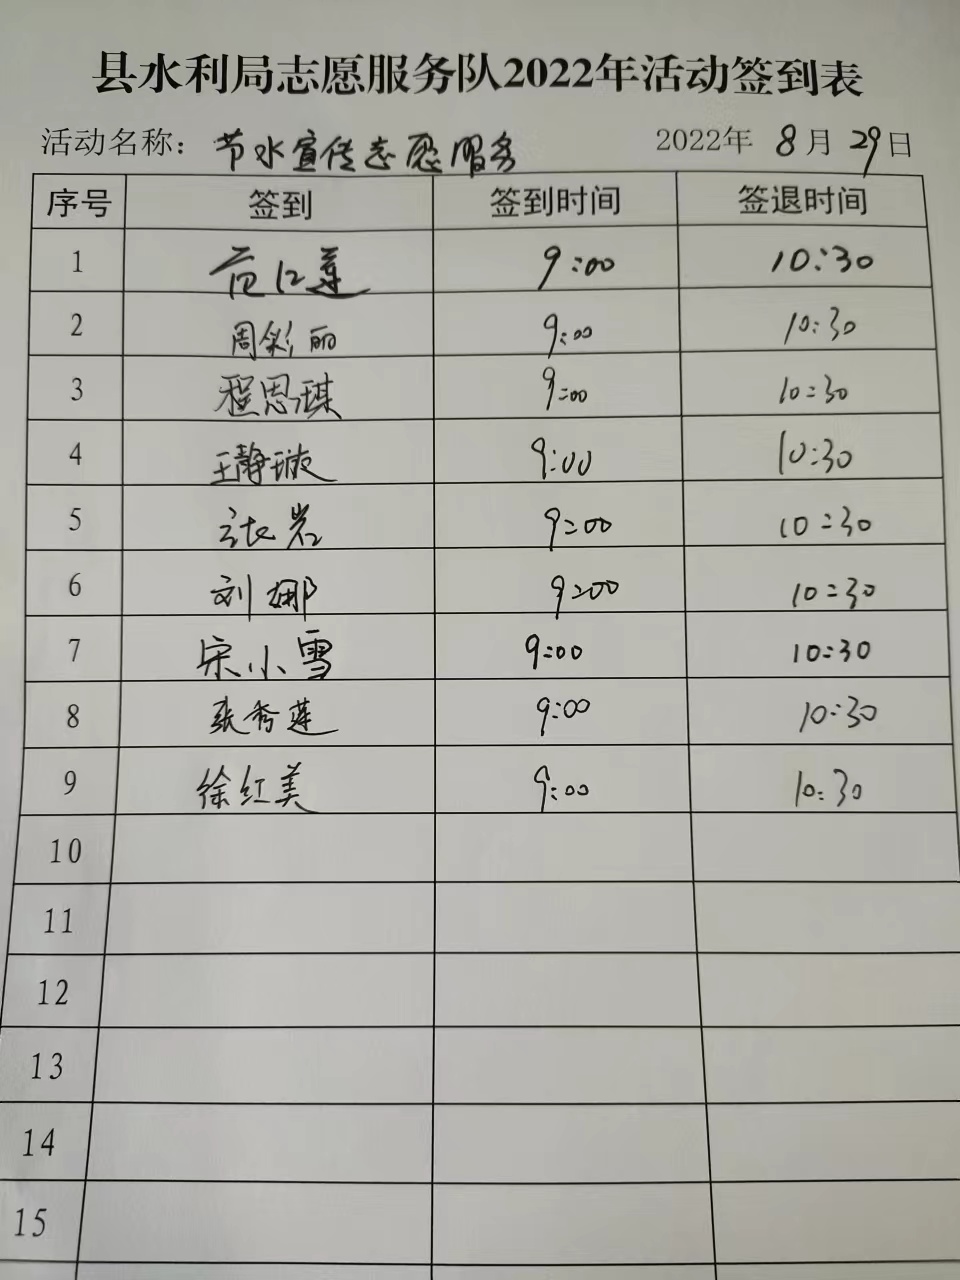 县水利局志愿服务队2022年活动签到表
活动名称：节水宣传志愿服务 2022年8月29日
序号 签到 签到时间 签退时间
1 范江莲 9:00 10:30
2 周彩丽 9:00 10:30
3 程思琪 9:00 10:30
4 王静璇 9:00 10:30
5 张岩 9:00 10:30
6 刘娜 9:00 10:30
7 宋小雪 9:00 10:30
8 张秀莲 9:00 10:30
9 徐红美 9:00 10:30
10
11
12
13
14
15